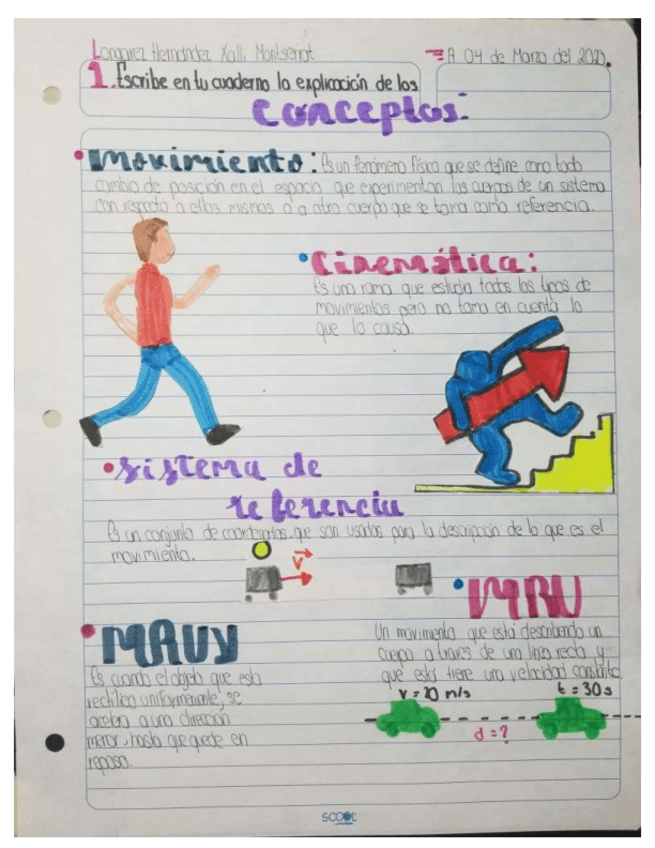 Longarez Hernández Xalli Montserrat
A 04 de Marzo del 2020.
1. Escribe en tu cuaderno la explicación de los
Conceptos:
• Movimiento: Es un fenómeno físico que se define como todo
cambio de posición en el espacio que experimentan los cuerpos de un sistema
con respecto a ellos mismos o a otro cuerpo que se toma como referencia.
• Cinemática:
Es una rama que estudia todos los tipos de
movimientos pero no toma en cuenta lo
que lo causa.
• Sistema de
referencia
Es un conjunto de coordenadas que son usados para la descripción de lo que es el
movimiento.
v
• MRU
Un movimiento que está describiendo un
cuerpo a través de una línea recta y
que está tiene una velocidad constante
v = 20 m/s
t = 30 s
d = ?
• MRUV
Es cuando el objeto que está
rectilíneo uniformemente, se
acelera a una dirección
menor, hasta que quede en
reposo.
SCOOL